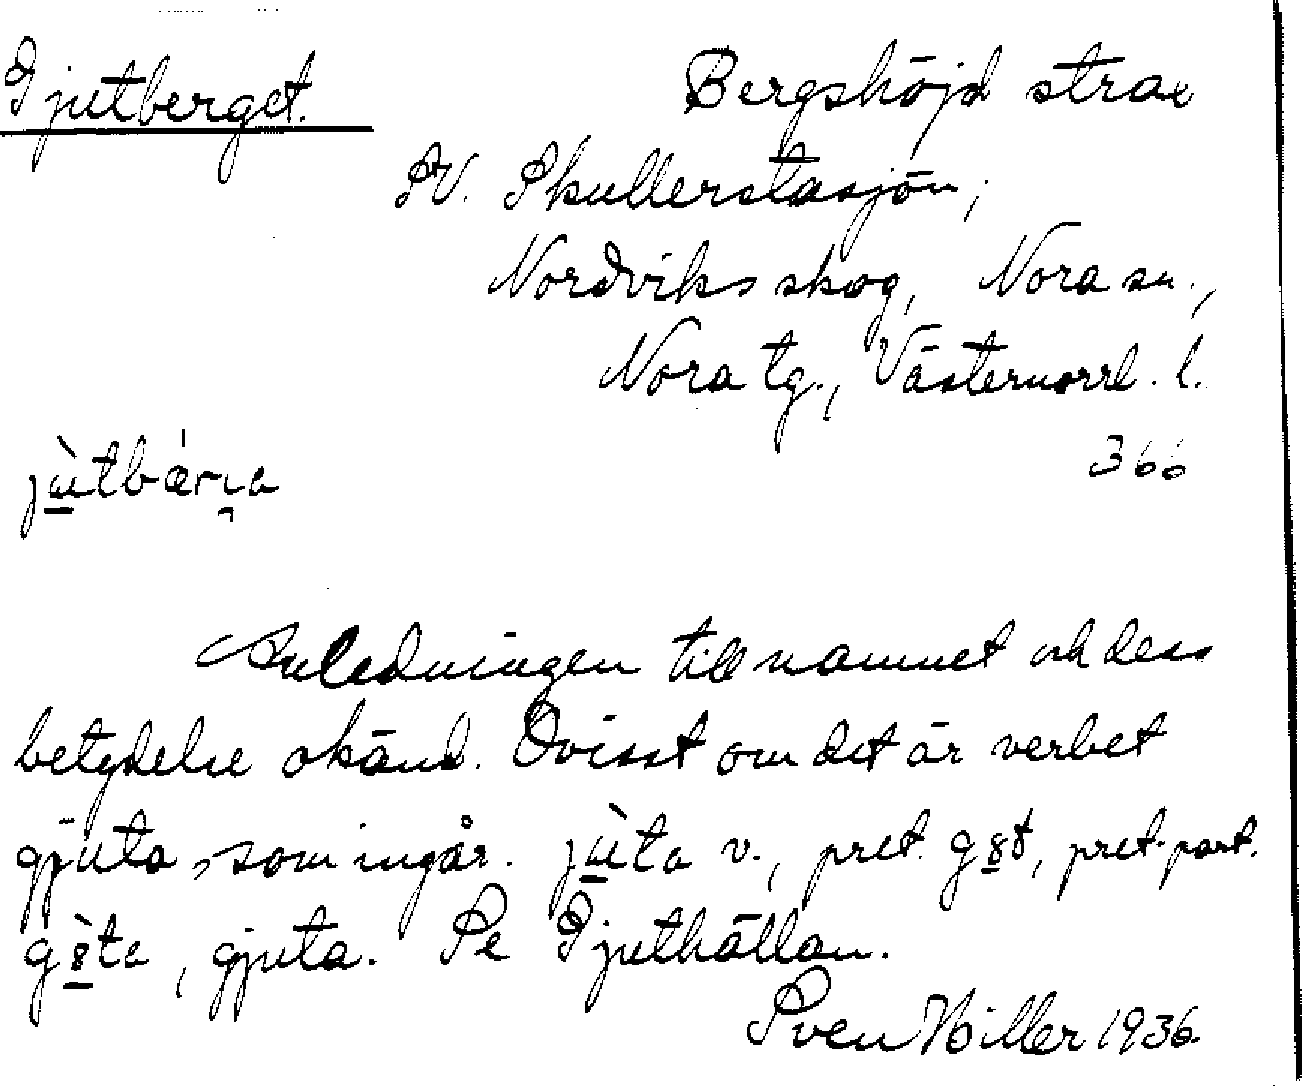 Gjutberget. Bergshöjd strax
SV. Skullerstasjön,
Nordviks skog, Nora sn.,
Nora tg., Västernorrl. l.
366
Anledningen till namnet och dess
betydelse okänd. Ovisst om det är verbet
gjuta, som ingår. v., pret. pret. part.
gjuta. Se Gjuthällan.
Sven Hiller 1936.